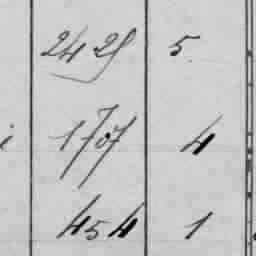 2425 5
i 1707 4
454 1